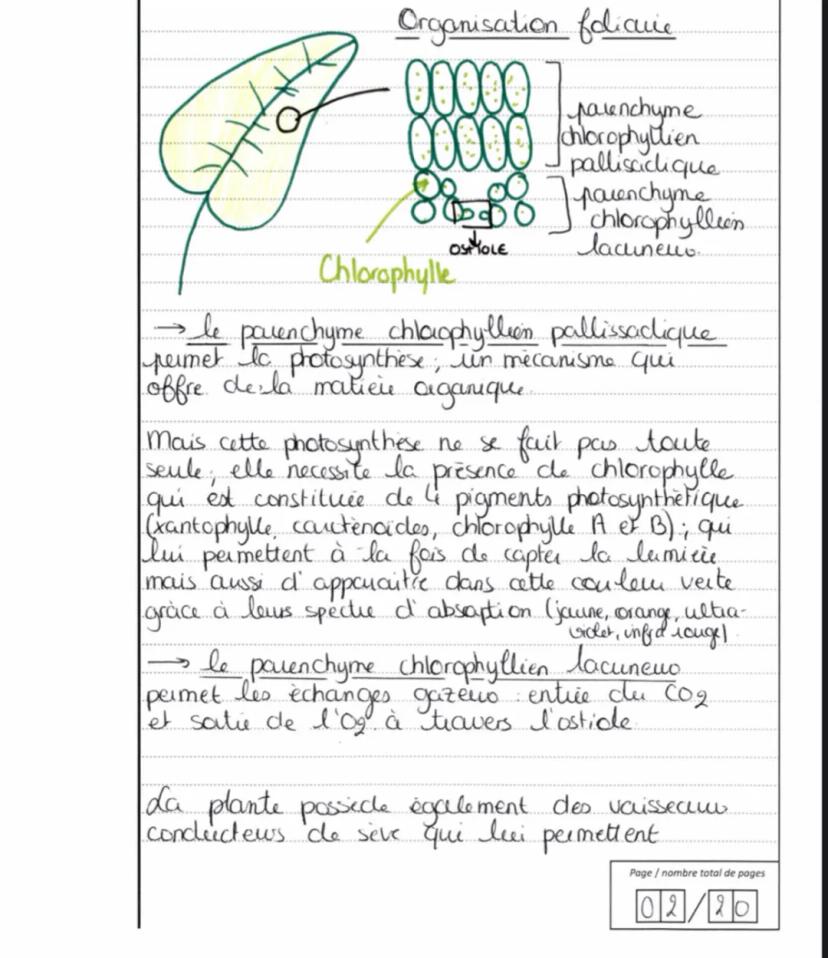 Organisation foliaire
parenchyme
chlorophyllien
pallissadique
parenchyme
chlorophyllien
lacuneux
OSTIOLE
Chlorophylle
→ le parenchyme chlorophyllien pallissadique
permet la photosynthèse ; un mécanisme qui
offre de la matière organique.
Mais cette photosynthèse ne se fait pas toute
seule ; elle necessite la présence de chlorophylle
qui est constituée de 4 pigments photosynthétique
(xantophylle, carténoides, chlorophylle A et B) ; qui
lui permettent à la fois de capter la lumière
mais aussi d'apparaitre dans cette couleur verte
grâce à leurs spectre d'absorption (jaune, orange, ultra-
violet, infra rouge)
→ le parenchyme chlorophyllien lacuneux
permet les échanges gazeux : entrée du CO2
et sortie de l'O2 à travers l'ostiole
La plante possède également des vaisseaux
conducteurs de sève qui lui permettent
Page / nombre total de pages
02/20